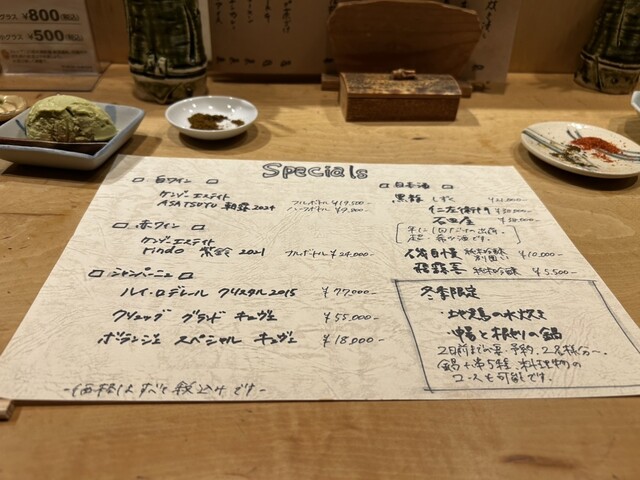 グラス ¥800(税込)
グラス ¥500(税込)
Specials
□ 白ワイン □
ケンゾーエステイト
ASATSUYU 朝露 2024 フルボトル ¥19,500-
ハーフボトル
□ 赤ワイン □
ケンゾーエステイト
rindo 紫鈴 2021 フルボトル ¥24,000-
□ シャンパーニュ □
ルイ・ロデレール クリスタル 2015 ¥77,000-
クリュッグ グランド キュヴェ ¥55,000-
ボランジェ スペシャル キュヴェ ¥18,000-
-価格はすべて税込みです-
□ 日本酒 □
黒龍 しずく
仁左衛門
石田屋
年に1回だけの出荷。
超 希少酒です。
¥10,000-
飛露喜 純米吟醸 ¥5,500-
冬季限定
・地鶏の水炊き
・鴨と根セリの鍋
2日前までの要予約、2名様分〜。
コースも可能です。